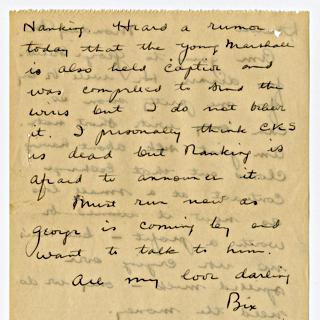 Nanking. Heard a rumor
today that the young Marshall
is also held captive and
was compelled to send the
wires but I do not believe
it. I personally think CKS
is dead but Nanking is
afraid to announce it.
Must run now as
George is coming by and
want to talk to him.
All my love darling
Bix